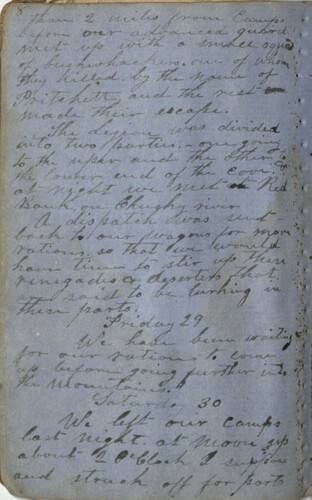 8
than 2 miles from Camps
before our advanced guard
met up with a small squad
of bushwhackers, one of whom
they killed by the name of
Pritchett and the rest
made their escape.
The was divided
into two parties, - one going
to the upper and the other to
the lower end of the cove.
at night we met at Red
Bank on river
A dispatch was sent
back to our wagons for more
rations so that we would
have time to stir up these
renegades & deserters that
are said to be lurking in
these parts.
Friday 29
We have been waiting
for our rations to come
up before going further into
the Mountains.
Saturday 30
We left our camps
last night at moon up
about 2 O'Clock I suppose
and struck off for parts